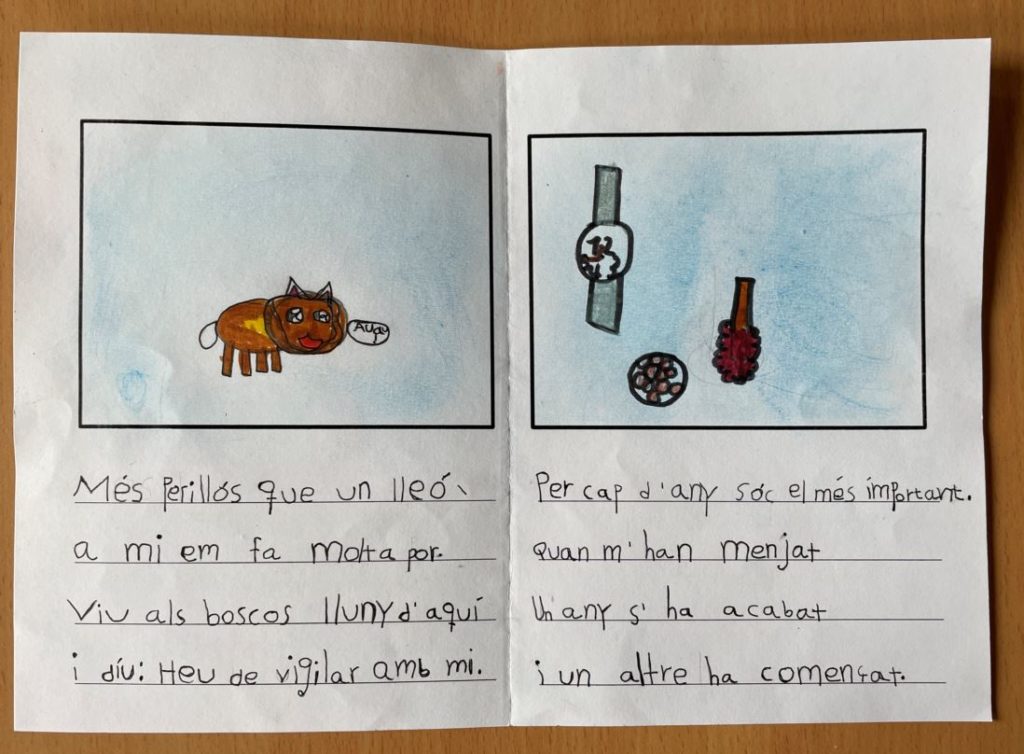 Auuu!
Més perillós que un lleó,
a mi em fa molta por.
Viu als boscos lluny d'aquí
i díu: Heu de vigilar amb mi.
12
Per cap d'any sóc el més important.
quan m'han menjat
Un any s'ha acabat
i un altre ha començat.